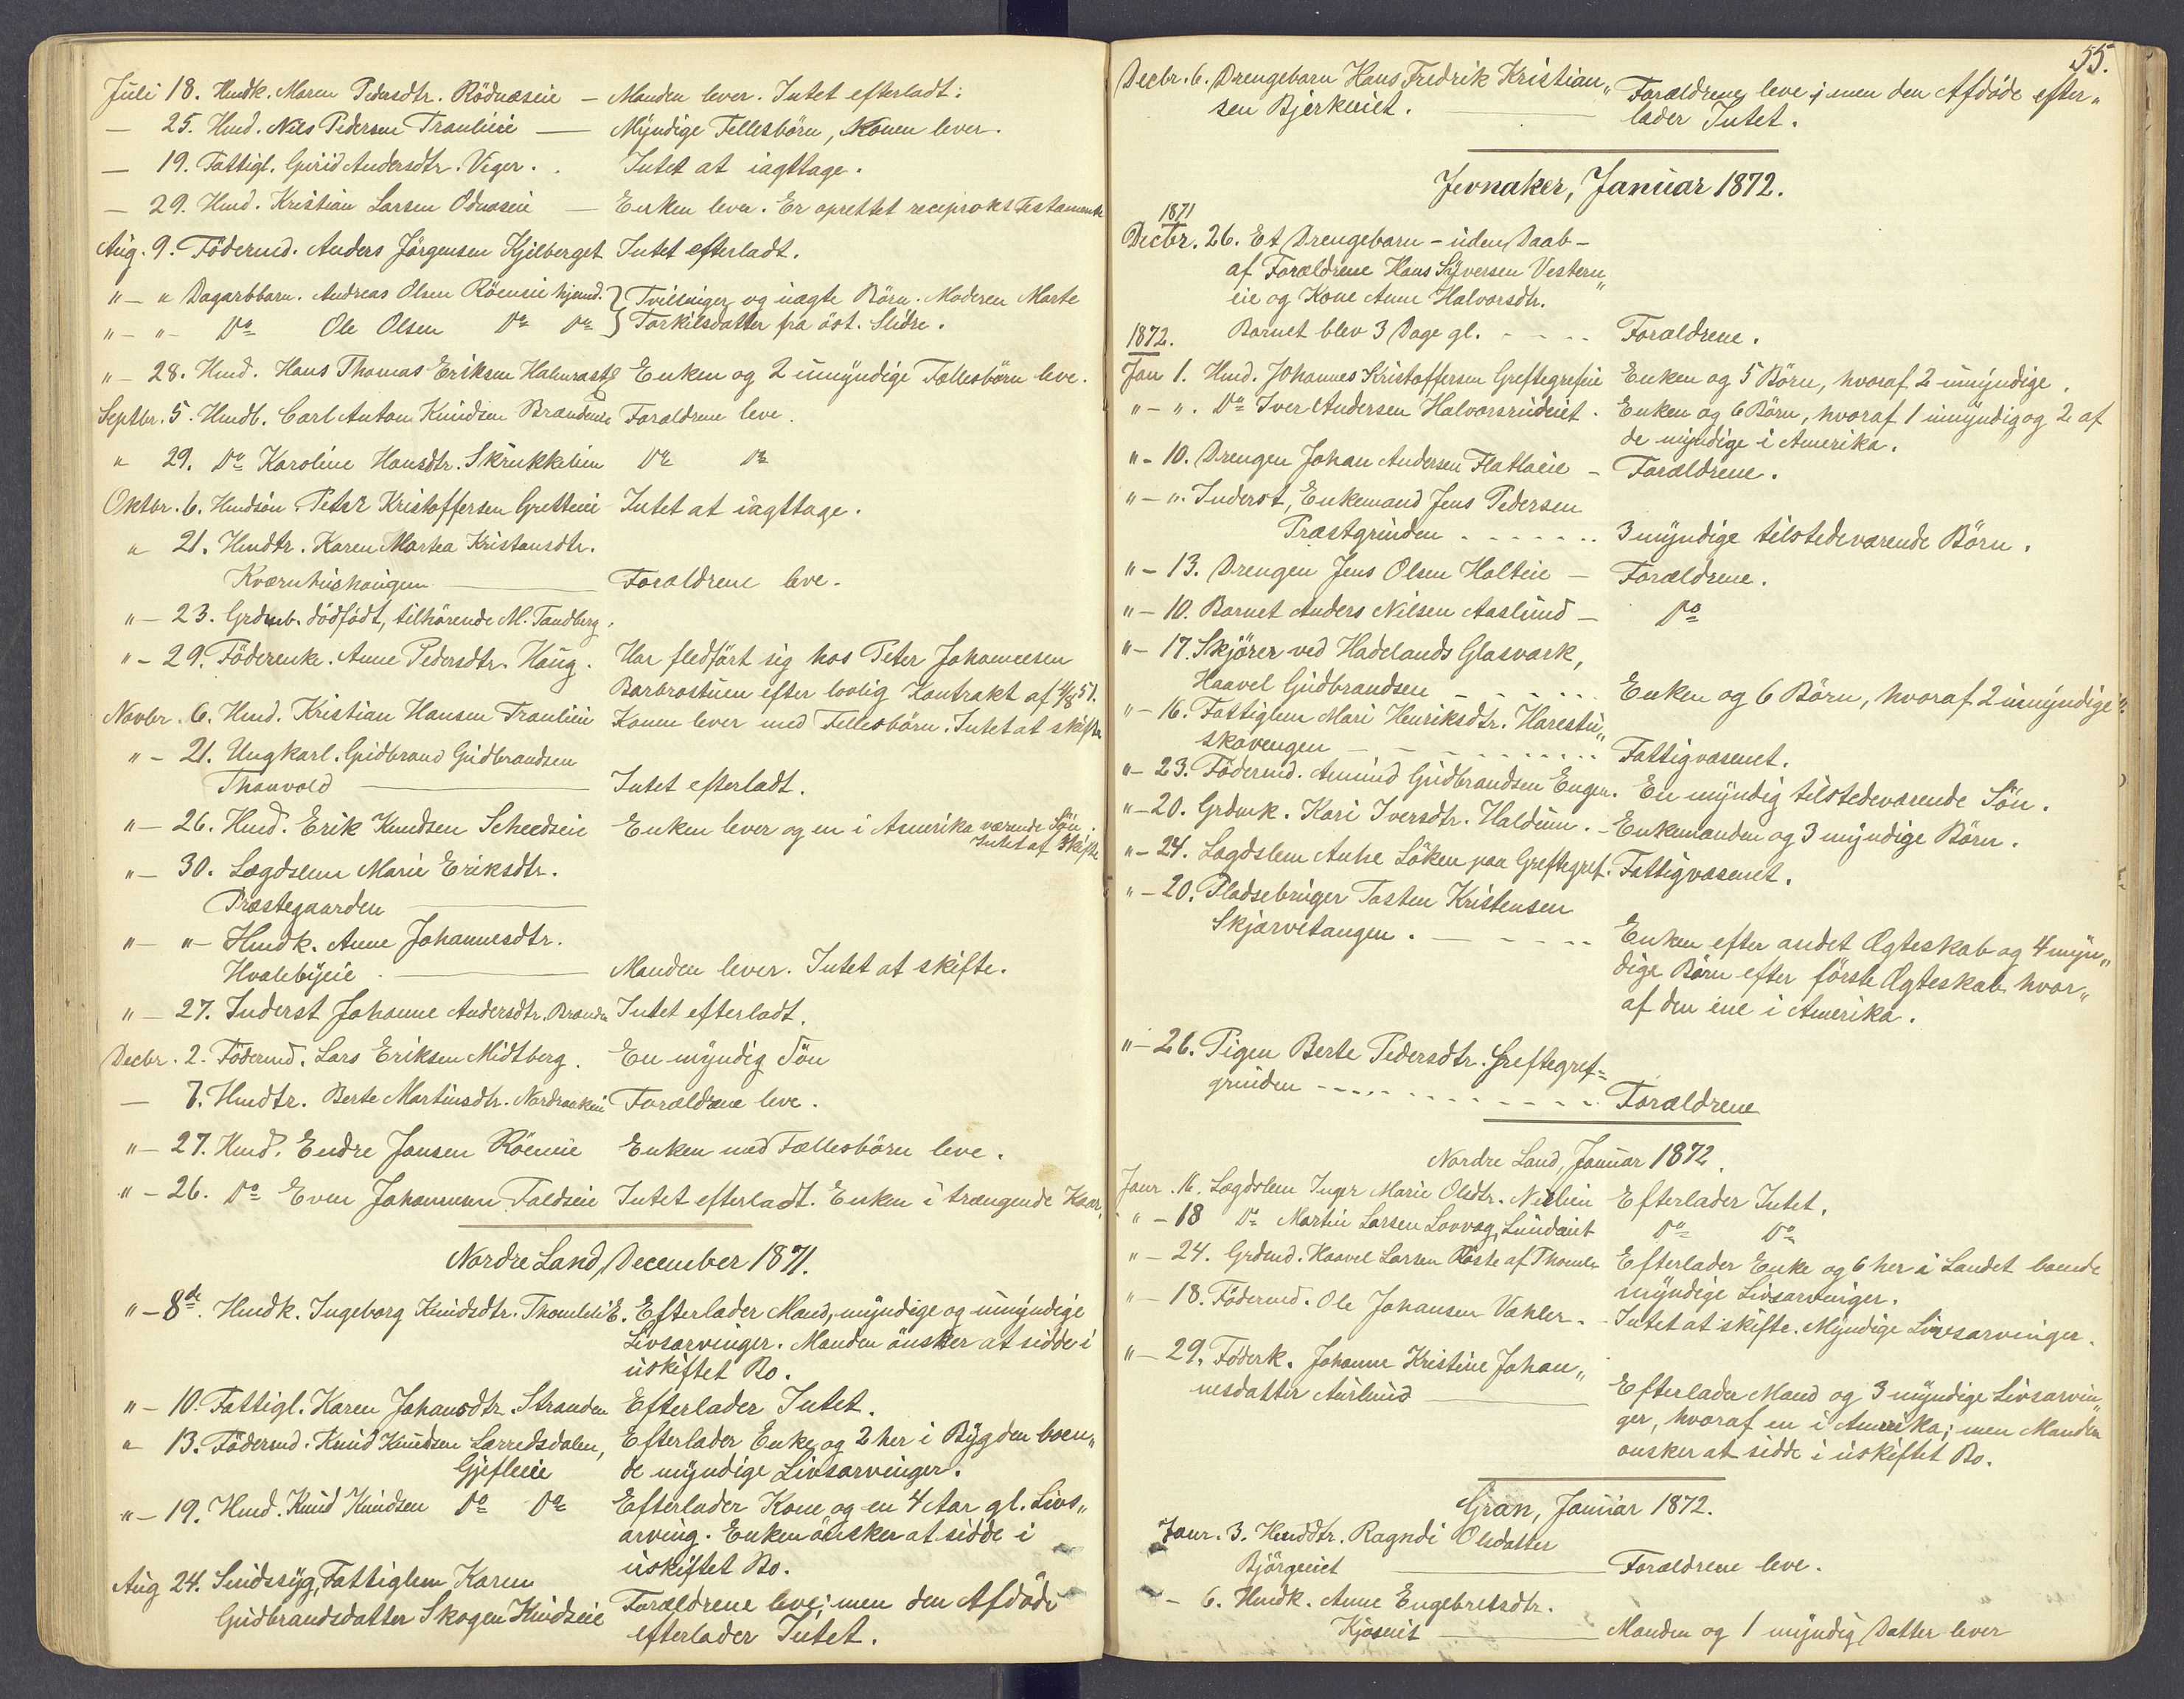 Juli 18. Hmdk. Maren Pedersdtr. Rödnæseie — Manden lever. Intet efterladt.
— 25. Hmd. Nils Pedersen Tranlieie — Myndige Fellesbörn, Konen lever.
— 19. Fattigl. Gurid Andersdtr. Viger. . Intet at iagttage.
— 29. Hmd. Kristian Larsen Odnæseie — Enken lever. Er oprettet reciprokt Testamente
Aug. 9. Födermd. Anders Jörgensen Kjelberget Intet efterladt.
" — " Dagarbbarn. Andreas Olsen Röenseie hjemd. } Tvillinger og uægte Börn. Moderen Marte
" — " — Do Ole Olsen Do Do } Torkilsdatter fra öst. Slidre.
" — 28. Hmd. Hans Thomas Eriksen Halmrast Enken og 2 umyndige Fællesbörn leve.
Septbr. 5. Hmdb. Carl Anton Knudsen Brandeneie Forældrene leve.
" 29. Do Karoline Hansdtr. Skrukkelien Do Do
Oktbr. 6. Hmdsön Peter Kristoffersen Gretteeie Intet at iagttage.
" 21. Hmdtr. Karen Martea Kristansdtr.
Kværnhushaugen — Forældrene leve.
" — 23. Grdmb. dödfödt, tilhörende M. Tandberg.
" — 29. Föderenke. Anne Pedersdtr. Haug. Har fledfört sig hos Peter Johannesen
Barbrostuen efter lovlig Kontrakt af 4/8 51.
Novbr. 6. Hmd. Kristian Hansen Tranlieie Konen lever med Fellesbörn. Intet at skifte
" — 21. Ungkarl. Gudbrand Gudbrandsen
Thonvold — Intet efterladt.
" — 26. Hmd. Erik Knudsen Scheedseie Enken lever og en i Amerika værende Sön.
Intet at skifte
" — 30. Lægdslem Marie Eriksdtr.
Præstegaarden —
" — " — Hmdk. Anne Johannesdtr.
Hvalebyeie — Manden lever. Intet at skifte.
" — 27. Inderst Johanne Andersdtr. Branden Intet efterladt.
Decbr. 2. Födermd. Lars Eriksen Midtberg. En myndig Sön
— 7. Hmdtr. Berte Martinsdtr. Nordraakeie Forældrene leve.
" — 27. Hmd. Endre Jonsen Röeneie Enken med Fællesbörn leve.
" — 26. Do Even Johannesen Faldseie Intet efterladt. Enken i trængende Kaar.
Nordre Land, December 1871.
" — 8de. Hmdk. Ingeborg Knudsdtr. Thomlevie. Efterlader Mand, myndige og umyndige
Livsarvinger. Manden önsker at sidde i
uskiftet Bo.
" — 10. Fattigl. Karen Johansdtr. Stranden Efterlader Intet.
" 13. Födermd. Knud Knudsen Larredsdalen, Efterlader Enke og 2 her i Bygden boen„
Gjefleeie de myndige Livsarvinger.
" — 19. Hmd. Knud Knudsen Do Do Efterlader Kone og en 4 Aar gl. Livs„
arving. Enken önsker at sidde i
uskiftet Bo.
Aug 24. Sindssyg, Fattiglem Karen
Gudbrandsdatter Skogen Kindseie Forældrene leve; men den Afdöde
efterlader Intet.
55.
Decbr. 6. Drengebarn Hans Fredrik Kristian„ Forældrene leve; men den Afdöde efter„
sen Bjerkeniet. — lader Intet.
Jevnaker, Januar 1872.
1871
Decbr. 26. Et Drengebarn – uden Daab –
af Forældrene Hans Syversen Vestern„
eie og Kone Anne Halvorsdtr.
1872. Barnet blev 3 Dage gl. - - - - Forældrene.
Jan 1. Hmd. Johannes Kristoffersen Greftegrefeie Enken og 5 Börn, hvoraf 2 umyndige.
" — ". Do Iver Andersen Halvorsrudeiet. Enken og 6 Börn, hvoraf 1 umyndig og 2 af
de myndige i Amerika.
" - 10. Drengen Johan Andersen Flatlaeie - Forældrene.
" — ". Inderst, Enkemand Jens Pedersen
Præstgrinden . - - - - - . . 3 myndige tilstedeværende Börn.
" — 13. Drengen Jens Olsen Holteie — Forældrene.
" — 10. Barnet Anders Nilsen Aaslund — Do
" — 17. Skjörer ved Hadelands Glasværk,
Haavel Gudbrandsen - - - - - Enken og 6 Börn, hvoraf 2 umyndige.
" — 16. Fattiglem Mari Henriksdtr. Harestu„
skovengen - - - - - - - Fattigvæsenet.
" — 23. Födermd. Amund Gudbrandsen Engen. En myndig tilstedeværende Sön.
" — 20. Grdmk. Kari Iversdtr. Haldum. - Enkemanden og 3 myndige Börn.
" — 24. Lægdslem Anhe Löken paa Greftegref. Fattigvæsenet.
" — 20. Pladsebruger Tosten Kristensen
Skjærvetangen. - - - - - Enken efter andet Ægteskab og 4 myn„
dige Börn efter förste Ægteskab hvor„
af den ene i Amerika.
" — 26. Pigen Berte Pedersdtr. Greftegref=
grinden - - - - - - - Forældrene
Nordre Land, Januar 1872.
Janr. 16. Lægdslem Inger Marie Olsdtr. Nislien Efterlader Intet.
" — 18 Do Martin Larsen Lovvog, Lundeiet Do Do
" — 24. Grdmd. Haavel Larsen Röste af Thomle Efterlader Enke og 6 her i Landet boende
myndige Livsarvinger.
" — 18. Födermd. Ole Johansen Vahler. - Intet at skifte. Myndige Livsarvinger.
" — 29. Föderk. Johanne Kristine Johan„
nesdatter Aurlund — Efterlader Mand og 3 myndige Livsarvin„
ger, hvoraf en i Amerika; men Manden
onsker at sidde i uskiftet Bo.
Gran, Januar 1872.
Janr. 3. Hmddtr. Ragndi Olsdatter
Björgeeiet — Forældrene leve.
— 6. Hmdk. Anne Engebretsdtr.
Kjöseiet — Manden og 1 myndig Datter lever